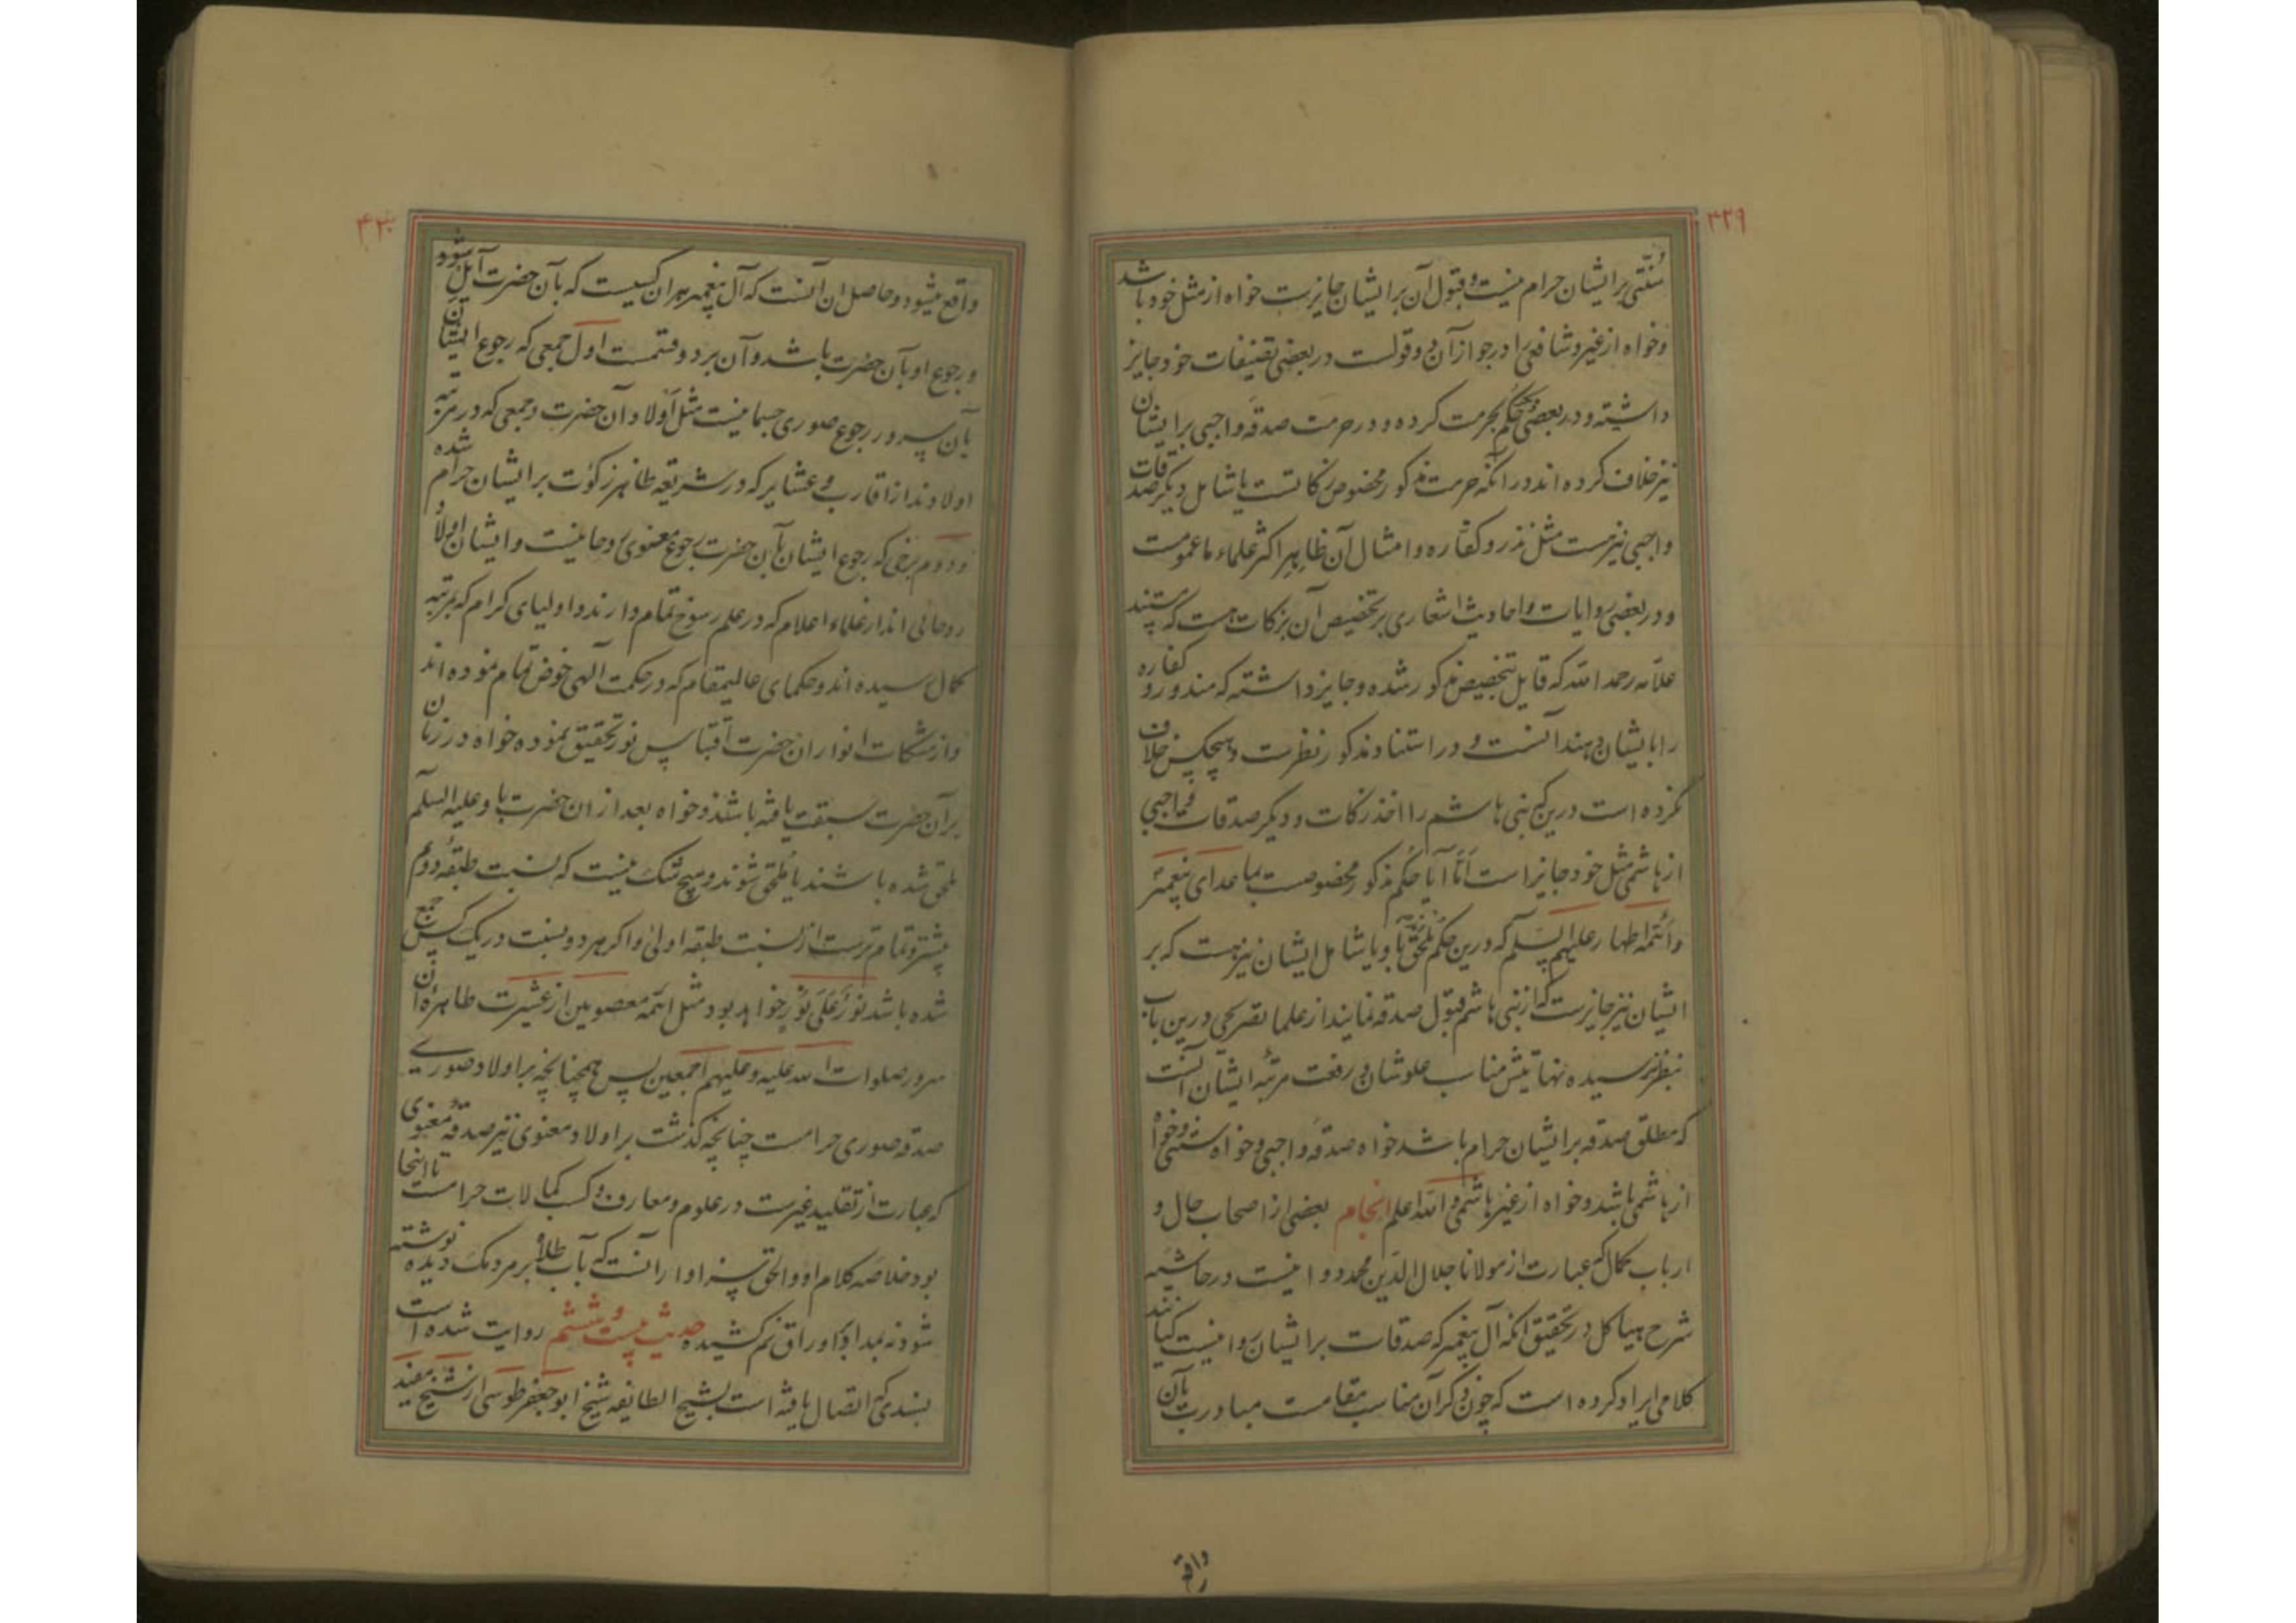 ۴۲۹
سُنّتی بر ایشان حرام نیست و قبول آن بر ایشان جایزست خواه از مثل خود باشد
و خواه از غیر و شافعی را در جواز آن دو قولست در بعضی تصنیفات خود جایز
داشته و در بعضی حکم بحرمت کرده و در حرمت صدقهٔ واجبی بر ایشان
نیز خلاف کرده اند در آنکه حرمت مذکور مخصوص زکاتست یا شامل دیگر صدقات
واجبی نیز هست مثل نذر و کفّاره و امثال آن ظاهر اکثر علماء ما عمومست
و در بعضی روایات و احادیث اشعاری بر تخصیص آن بزکات هست که مستند
علّامه رحمه الله که قایل بتخصیص مذکور شده و جایز داشته که منذور و کفاره
را بایشان دهند آنست و در استناد مذکور نظرست و هیچکس خلاف
نکرده است درین که بنی هاشم را اخذ زکات و دیگر صدقات واجبی
از هاشمی مثل خود جایز است امّا آیا حکم مذکور مخصوصست بماعدای پیغمبر
و ائمّه اطهار علیهم السلم که درین حکم ملحق باو یا شامل ایشان نیز هست که بر
ایشان نیز جایزست که از بنی هاشم قبول صدقه نمایند از علما تصریحی درین باب
بنظر نرسیده نهایتش مناسب علو شان و رفعت مرتبهٔ ایشان آنست
که مطلق صدقه بر ایشان حرام باشد خواه صدقهٔ واجبی و خواه سنتی و خواه
از هاشمی باشد و خواه از غیر هاشمی و الله اعلم انجام بعضی از اصحاب حال و
ارباب کمال که عبارت از مولانا جلال الدین محمد دوانیست در حاشیه
شرح هیاکل در تحقیق آنکه آل پیغمبر که صدقات بر ایشان روا نیست کیانند
کلامی ایراد کرده است که چون ذکر آن مناسب مقامست مبادرت بآن
واقع
۴۳۰
واقع میشود و حاصل ان آنست که آل پیغمبر هر ان کسیست که بآن حضرت آیل شود
و رجوع او بآن حضرت باشد و آن بر دو قسمست اول جمعی که رجوع ایشان
بآن سرور رجوع صوری جسمانیست مثل اولاد آن حضرت و جمعی که در مرتبه
اولادند از اقارب و عشایر که در شریعه طاهر زکوٰت بر ایشان حرام شده
و دوم برخی که رجوع ایشان بآن حضرت رجوع معنوی روحانیست و ایشان اولاد
روحانی اند از علماء اعلام که در علم رسوخ تمام دارند و اولیای کرام که بمرتبه
کمال رسیده اند و حکمای عالیمقام که در حکمت آلهی خوض تمام نموده اند
و از مشکات انوار ان حضرت اقتباس نور تحقیق نموده خواه در زمان
بر آن حضرت سبقت یافته باشند و خواه بعد از ان حضرت باو علیه السلم
ملحق شده باشند یا ملحق شوند و هیچ شک نیست که نسبت طبقهٔ دوم
بیشتر و تمام ترست از نسبت طبقه اولیٰ و اگر هر دو نسبت در یک کس جمع
شده باشد نُورٌ عَلَی نُورٍ خواهد بود مثل ائمّه معصومین از عشیرت طاهرهٔ ان
سرور صلوات الله علیه و علیهم اجمعین پس همچنانچه بر اولاد صوری
صدقه صوری حرامست چنانچه گذشت بر اولاد معنوی نیز صدقهٔ معنوی
که عبارت از تقلید غیرست در علوم و معارف و کسب کمالات حرامست تا اینجا
بود خلاصه کلام او و الحق سزاوار آنست که بآب طلا بر مردمک دیده نوشته
شود نه بمداد بر اوراق رقم کشیده حدیث بیست و ششم روایت شده است
بسندی که اتصال یافته است بشیخ الطایفه شیخ ابو جعفر طوسی از شیخ مفید